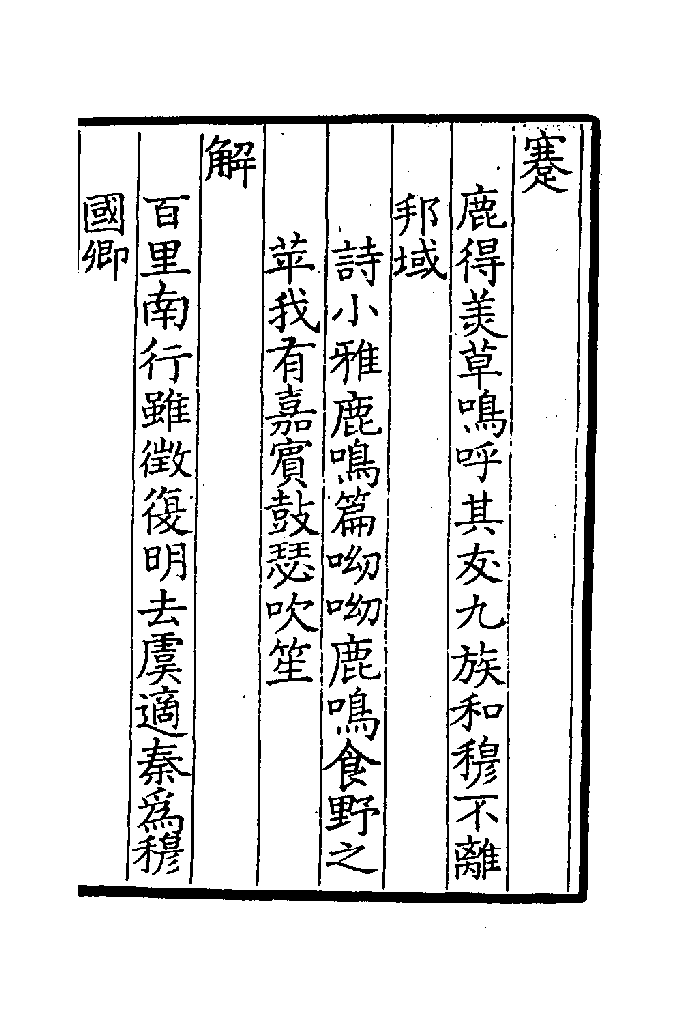 蹇
鹿得美草鳴呼其友九族和穆不離
邦域
詩小雅鹿鳴篇呦呦鹿鳴食野之
苹我有嘉賓鼓瑟吹笙
解
百里南行雖徴復明去虞適秦爲穆
國卿